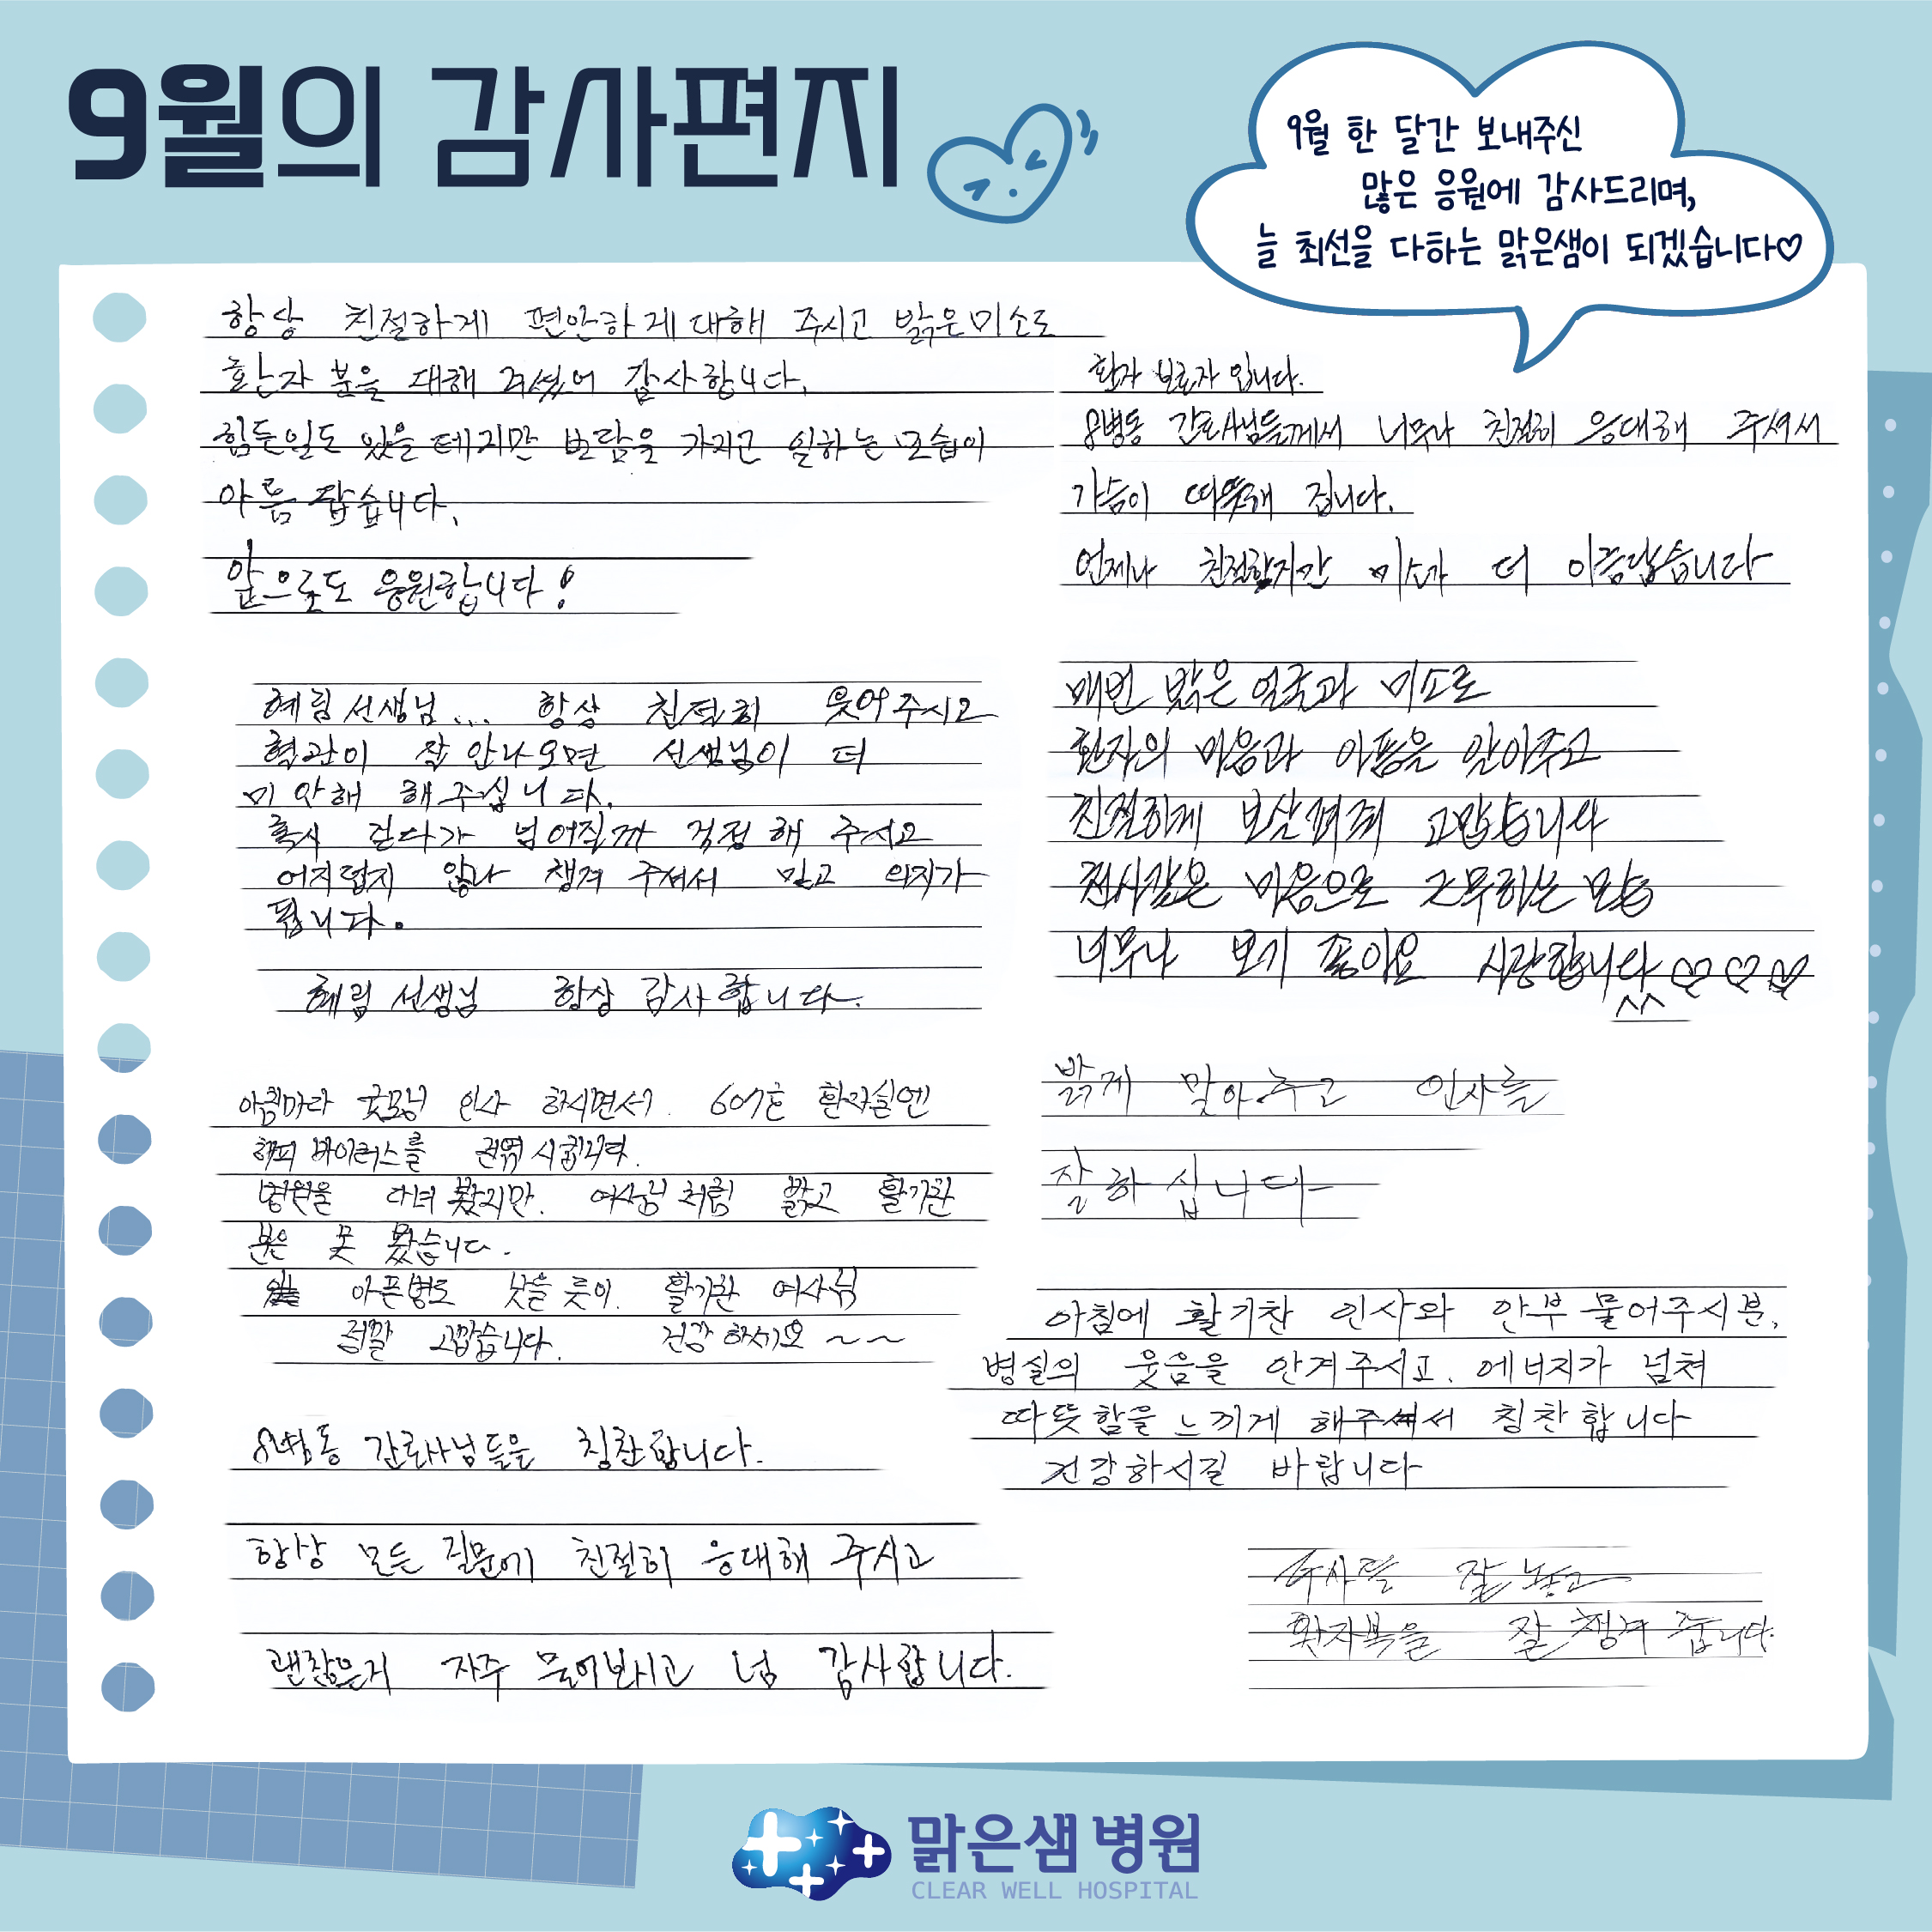 9월의 감사편지
9월 한 달간 보내주신
많은 응원에 감사드리며,
늘 최선을 다하는 맑은샘이 되겠습니다♡
항상 친절하게 편안하게 대해 주시고 밝은미소로
환자 분을 대해 주셨어 감사합니다.
힘든일도 있을 테지만 보람을 가지고 일하는 모습이
아름 답습니다.
앞으로도 응원합니다!
혜림 선생님... 항상 친절히 웃어주시고
혈관이 잘 안나오면 선생님이 더
미안해 해주십니다.
혹시 걷다가 넘어질까 걱정해 주시고
어지럽지 않나 챙겨 주셔서 믿고 의지가
됩니다.
혜림 선생님 항상 감사합니다.
아침마다 굿모닝 인사 하시면서. 607호 환자실엔
해피 바이러스를 전염 시킵니다.
병원을 다녀 봤지만. 여사님처럼 밝고 활기찬
분은 못 봤습니다.
아픈병도 낫을 듯이. 활기찬 여사님
정말 고맙습니다. 건강하세요 ~~
8병동 간호사님들을 칭찬합니다.
항상 모든 질문에 친절히 응대해 주시고
괜찮은지 자주 물어보시고 넘 감사합니다.
환자 보호자 입니다.
8병동 간호사님들께서 너무나 친절히 응대해 주셔서
가슴이 따뜻해 집니다.
언제나 친절하지만 미소가 더 아름답습니다
매번 밝은 얼굴과 미소로
환자의 마음과 아픔을 알아주고
친절하게 보살펴줘 고맙습니다
천사같은 마음으로 근무하는 모습
너무나 보기 좋아요 사랑합니다 ♡♡♡
^^
밝게 맞아주고 인사를
잘하십니다
아침에 활기찬 인사와 안부 물어주시분,
병실의 웃음을 안겨주시고. 에너지가 넘쳐
따뜻함을 느끼게 해주셔서 칭찬합니다
건강하시길 바랍니다
주사를 잘 놓고
환자복을 잘 챙겨 줍니다.
맑은샘 병원
CLEAR WELL HOSPITAL